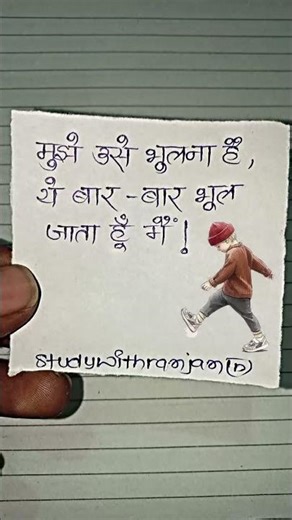 मुझे उसे भूलना हैं,
यें बार-बार भूल
जाता हूँ मैं!
studywithranjan(r)